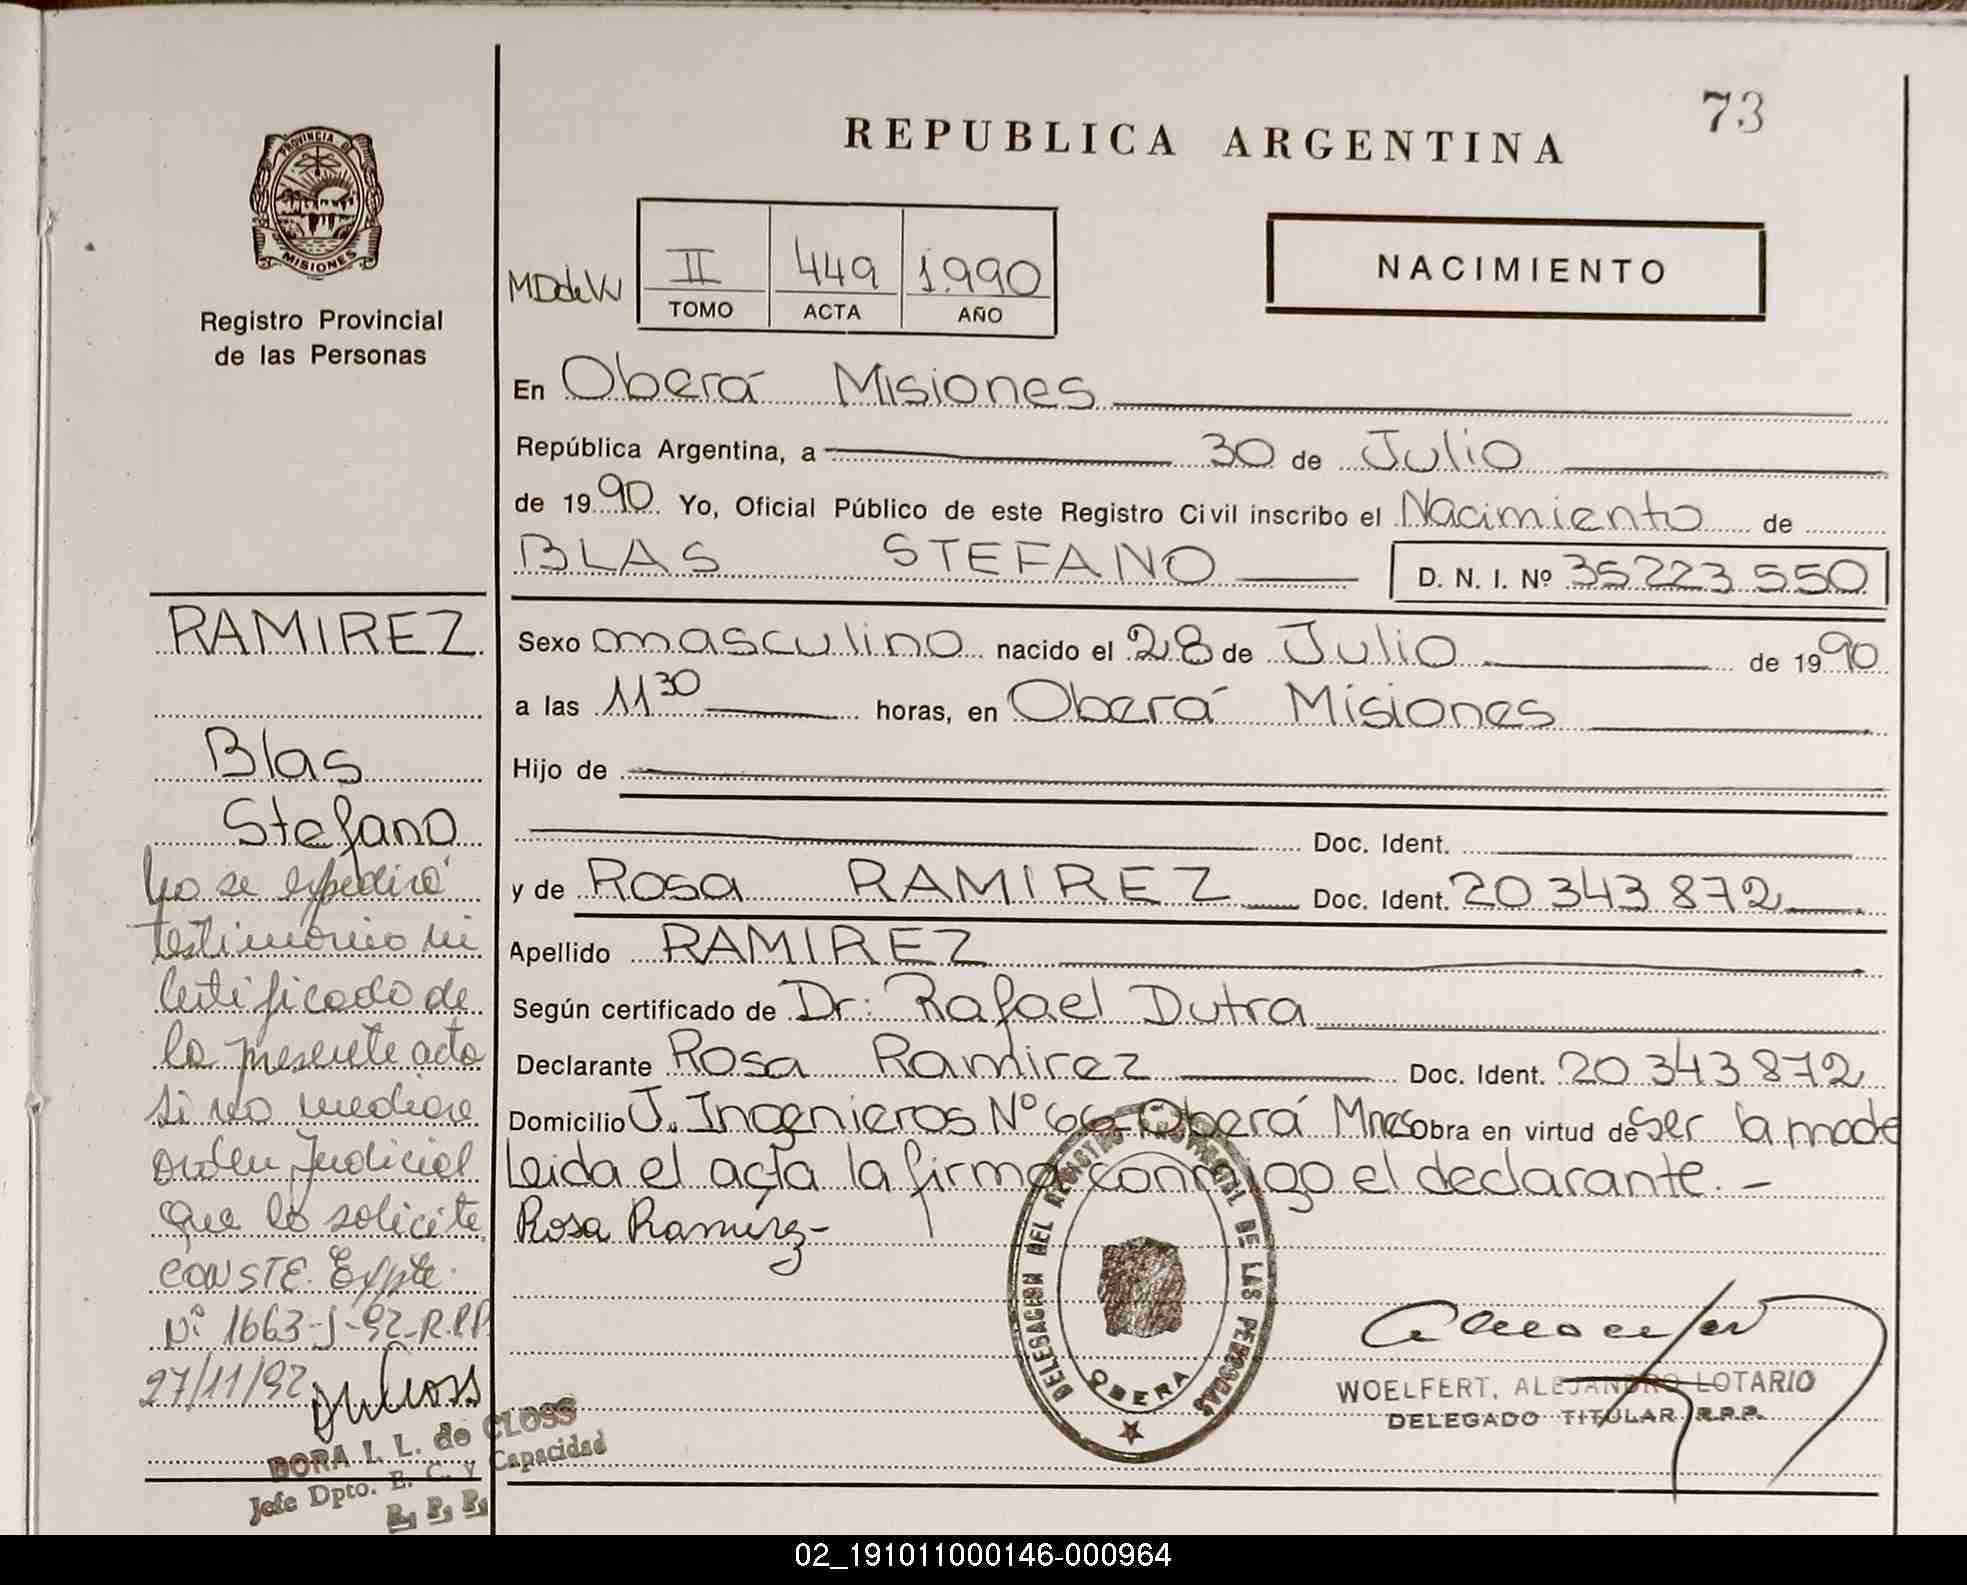 73
REPUBLICA ARGENTINA
PROVINCIA DE
MISIONES
Registro Provincial
de las Personas
MDdeW
II 449 1.990
TOMO ACTA AÑO
NACIMIENTO
En Oberá Misiones
República Argentina, a 30 de Julio
de 1990. Yo, Oficial Público de este Registro Civil inscribo el Nacimiento de
BLAS STEFANO D. N. I. Nº 35223550
Sexo masculino nacido el 28 de Julio de 1990
a las 11 30 horas, en Oberá Misiones
Hijo de
Doc. Ident.
y de Rosa RAMIREZ Doc. Ident. 20 343 872
Apellido RAMIREZ
Según certificado de Dr: Rafael Dutra
Declarante Rosa Ramirez Doc. Ident. 20 343 872
Domicilio J. Ingenieros Nº 66 Oberá Mnes Obra en virtud de ser la madre
Leida el acta la firma conmigo el declarante. -
Rosa Ramírez -
RAMIREZ
Blas
Stefano
No se expedirá
testimonio ni
certificado de
la presente acta
si no mediare
orden Judicial
que lo solicite
CONSTE. Expte.
Nº 1663-J-92-R.P.P.
27/11/92
DORA I. L. de CLOSS
Jefe Dpto. E. C. y Capacidad
R. P. P.
DELEGACION DEL REGISTRO PROVINCIAL DE LAS PERSONAS
OBERA
WOELFERT, ALEJANDRO LOTARIO
DELEGADO TITULAR R.P.P.
02_191011000146-000964